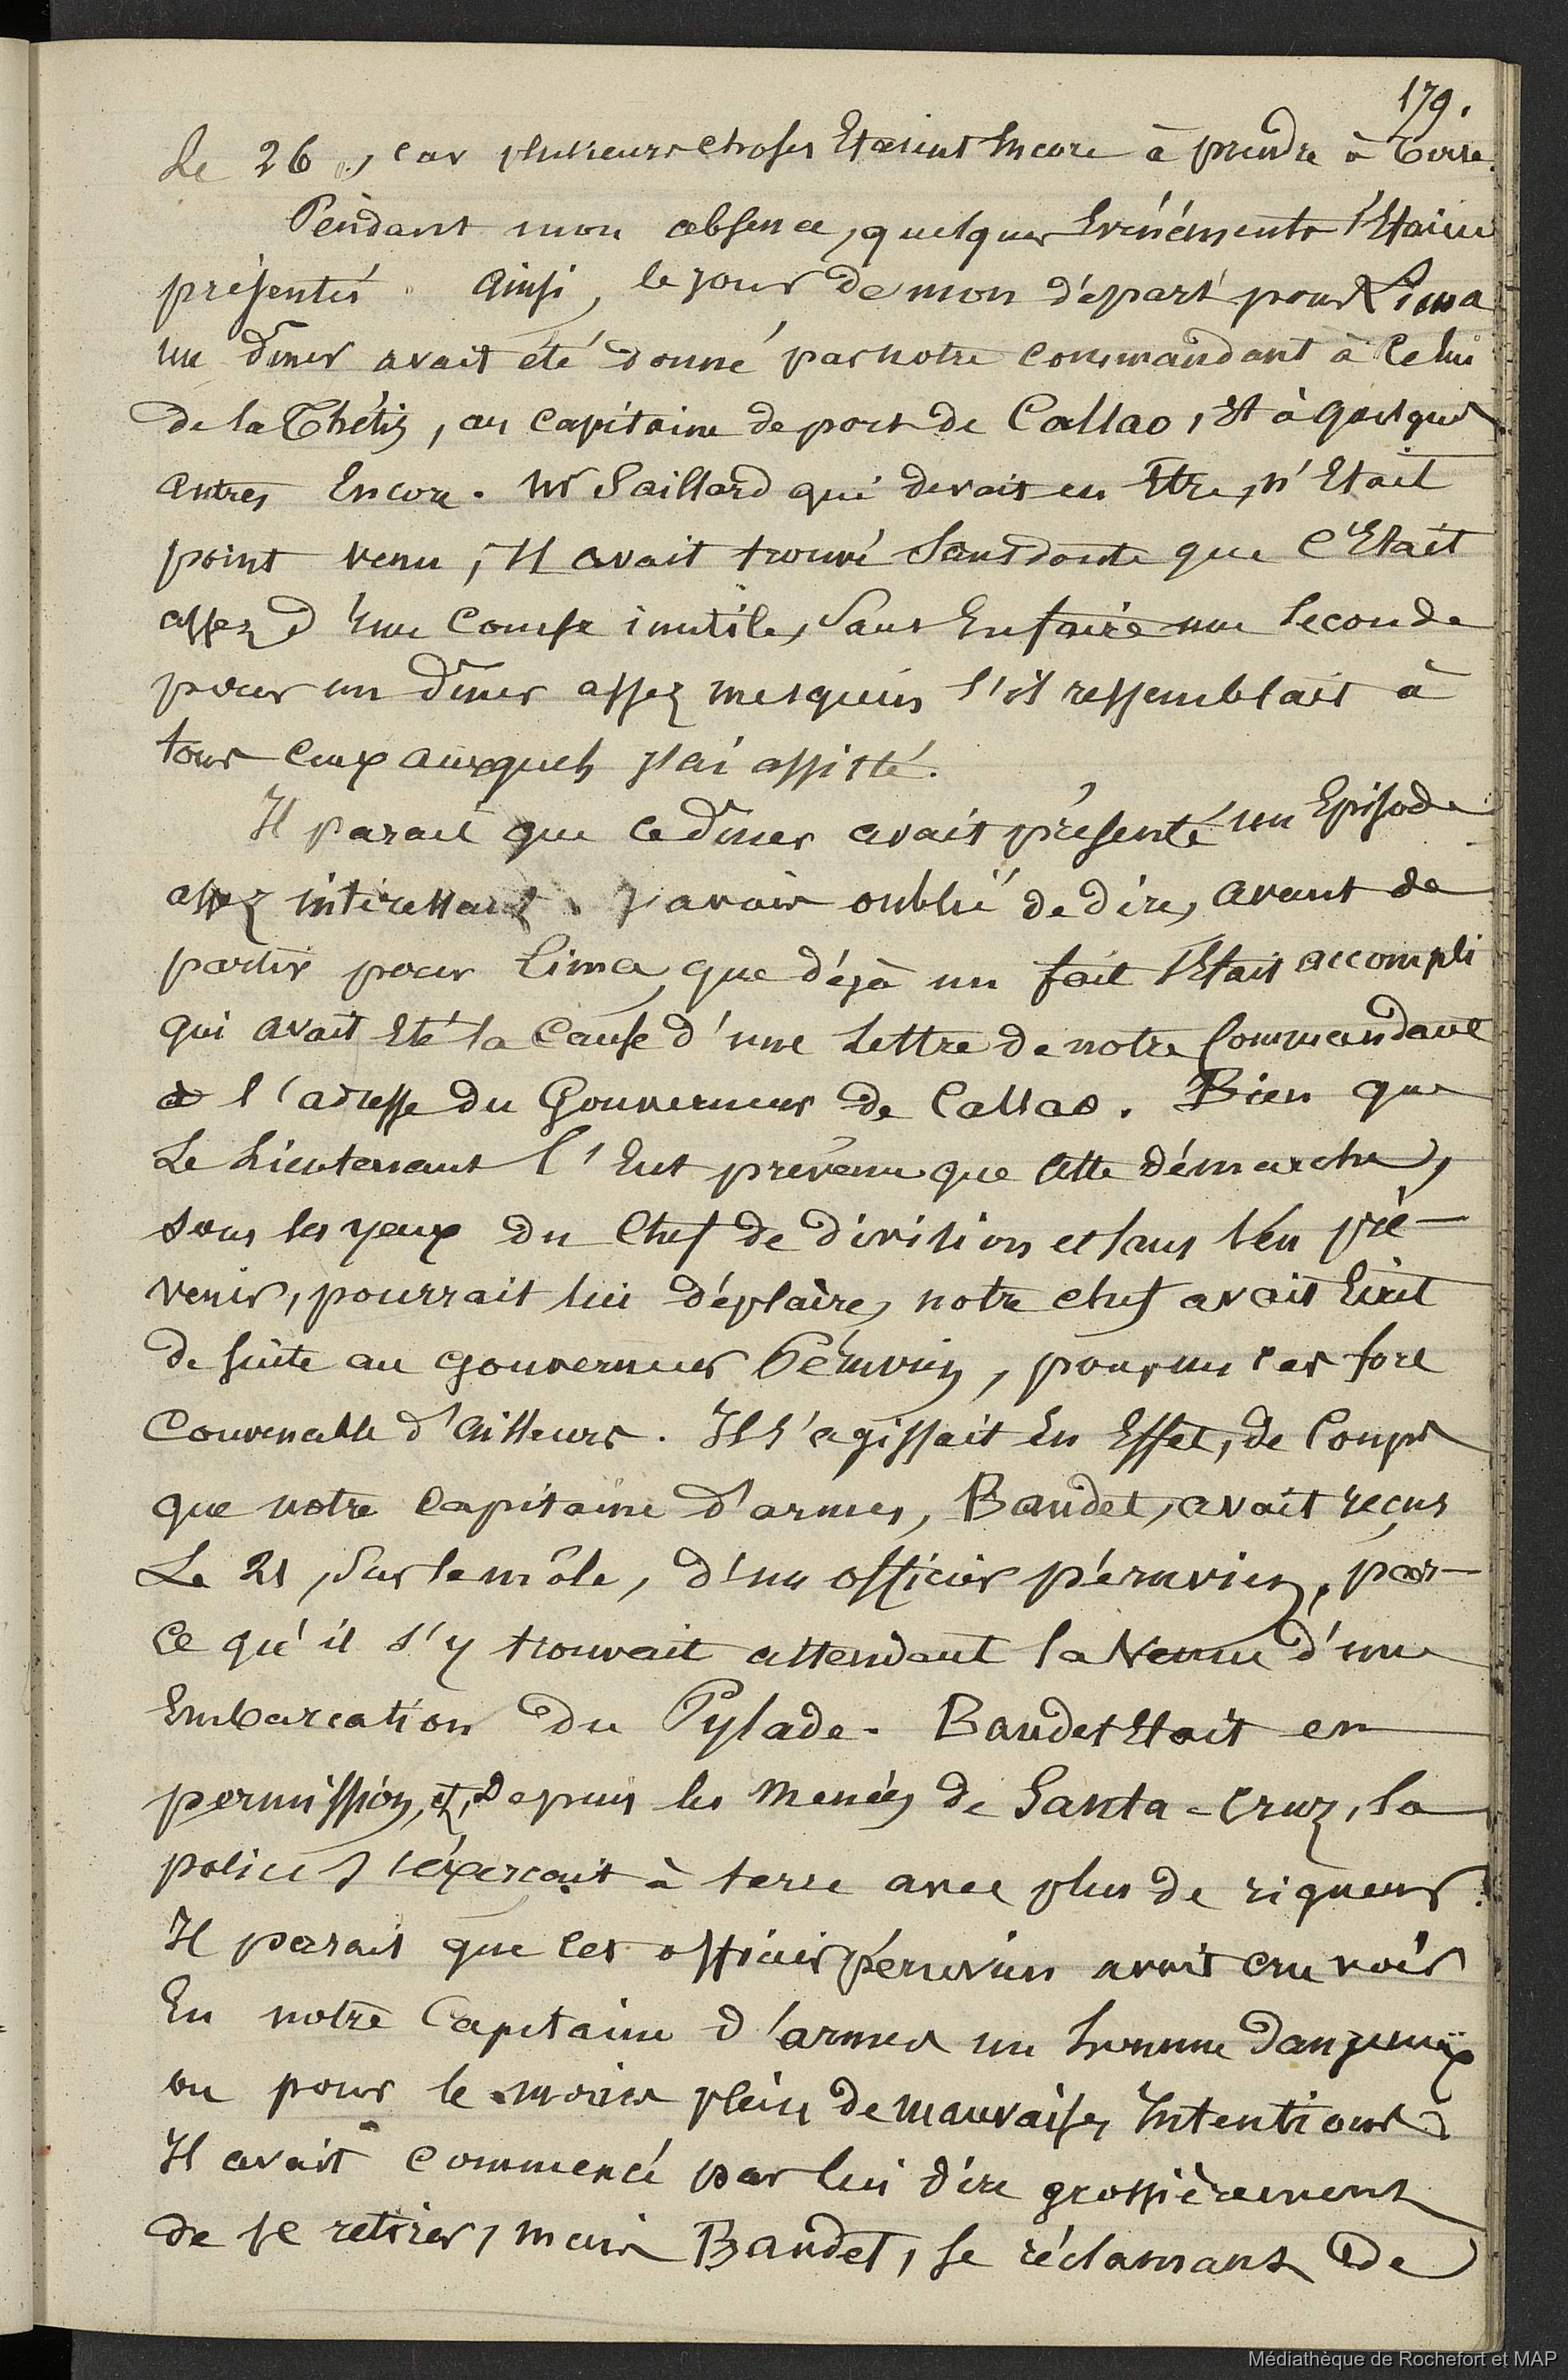 179.
Le 26, car plusieurs choses Etaient Encore à prendre à Terre.
Pendant mon absence, quelques Evénéments s'Etaient
présentés. Ainsi, le jour de mon départ pour Lima
un dîner avait été donné par notre commandant à Celui
de la Thétis, au Capitaine de port de Callao, Et à quelques
autres Encore. Mr Saillard qui devait en Etre, n'Etait
point venu; Il avait trouvé Sans doute que C'Etait
assez d'une Course inutile, Sans En faire une Seconde
pour un dîner assez mesquin s'il ressemblait à
tous Ceux auxquels j'ai assisté.
Il parait que ce dîner avait présenté un Episode
assez intéressant. J'avais oublié de dire, avant de
partir pour Lima, que déjà un fait s'Etait accompli
qui avait Eté la Cause d'une Lettre de notre Commandant
à l'adresse du Gouverneur de Callao. Bien que
Le Lieutenant l'Eut prévenu que Cette démarche,
sous les yeux du Chef de division et sans l'en pré-
venir, pourrait lui déplaire, notre chef avait Ecrit
de suite au gouverneur Péruvien, pour un cas fort
Convenable d'Ailleurs. Il s'agissait En Effet, de Coups
que notre Capitaine d'armes, Baudet, avait reçus
Le 21, Sur le môle, d'un officier péruvien, par-
ce qu'il s'y trouvait attendant la Venue d'une
Embarcation du Pylade. Baudet Etait en
permission, et, Depuis les Menées de Santa-Cruz, la
police s'éxerçait à terre avec plus de rigueur.
Il parait que cet officier Péruvien avait cru voir
En notre Capitaine d'armes un homme dangereux
ou pour le moins plein de mauvaises Intentions.
Il avait Commencé par lui dire grossièrement
de se retirer, mais Baudet, se réclamant de
Médiathèque de Rochefort et MAP